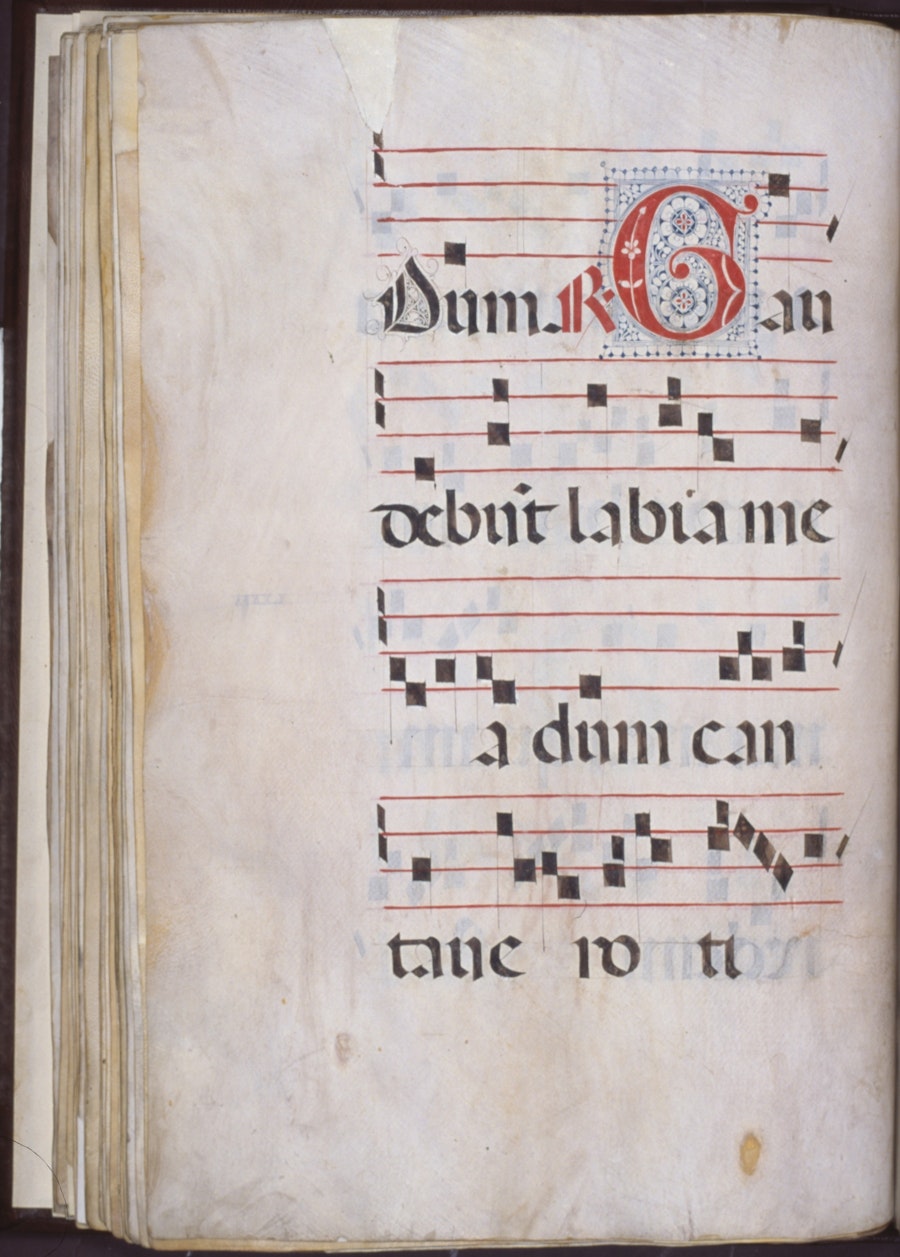 Dum. R. Gau
debūt labia me
a dum can
tave ro ti